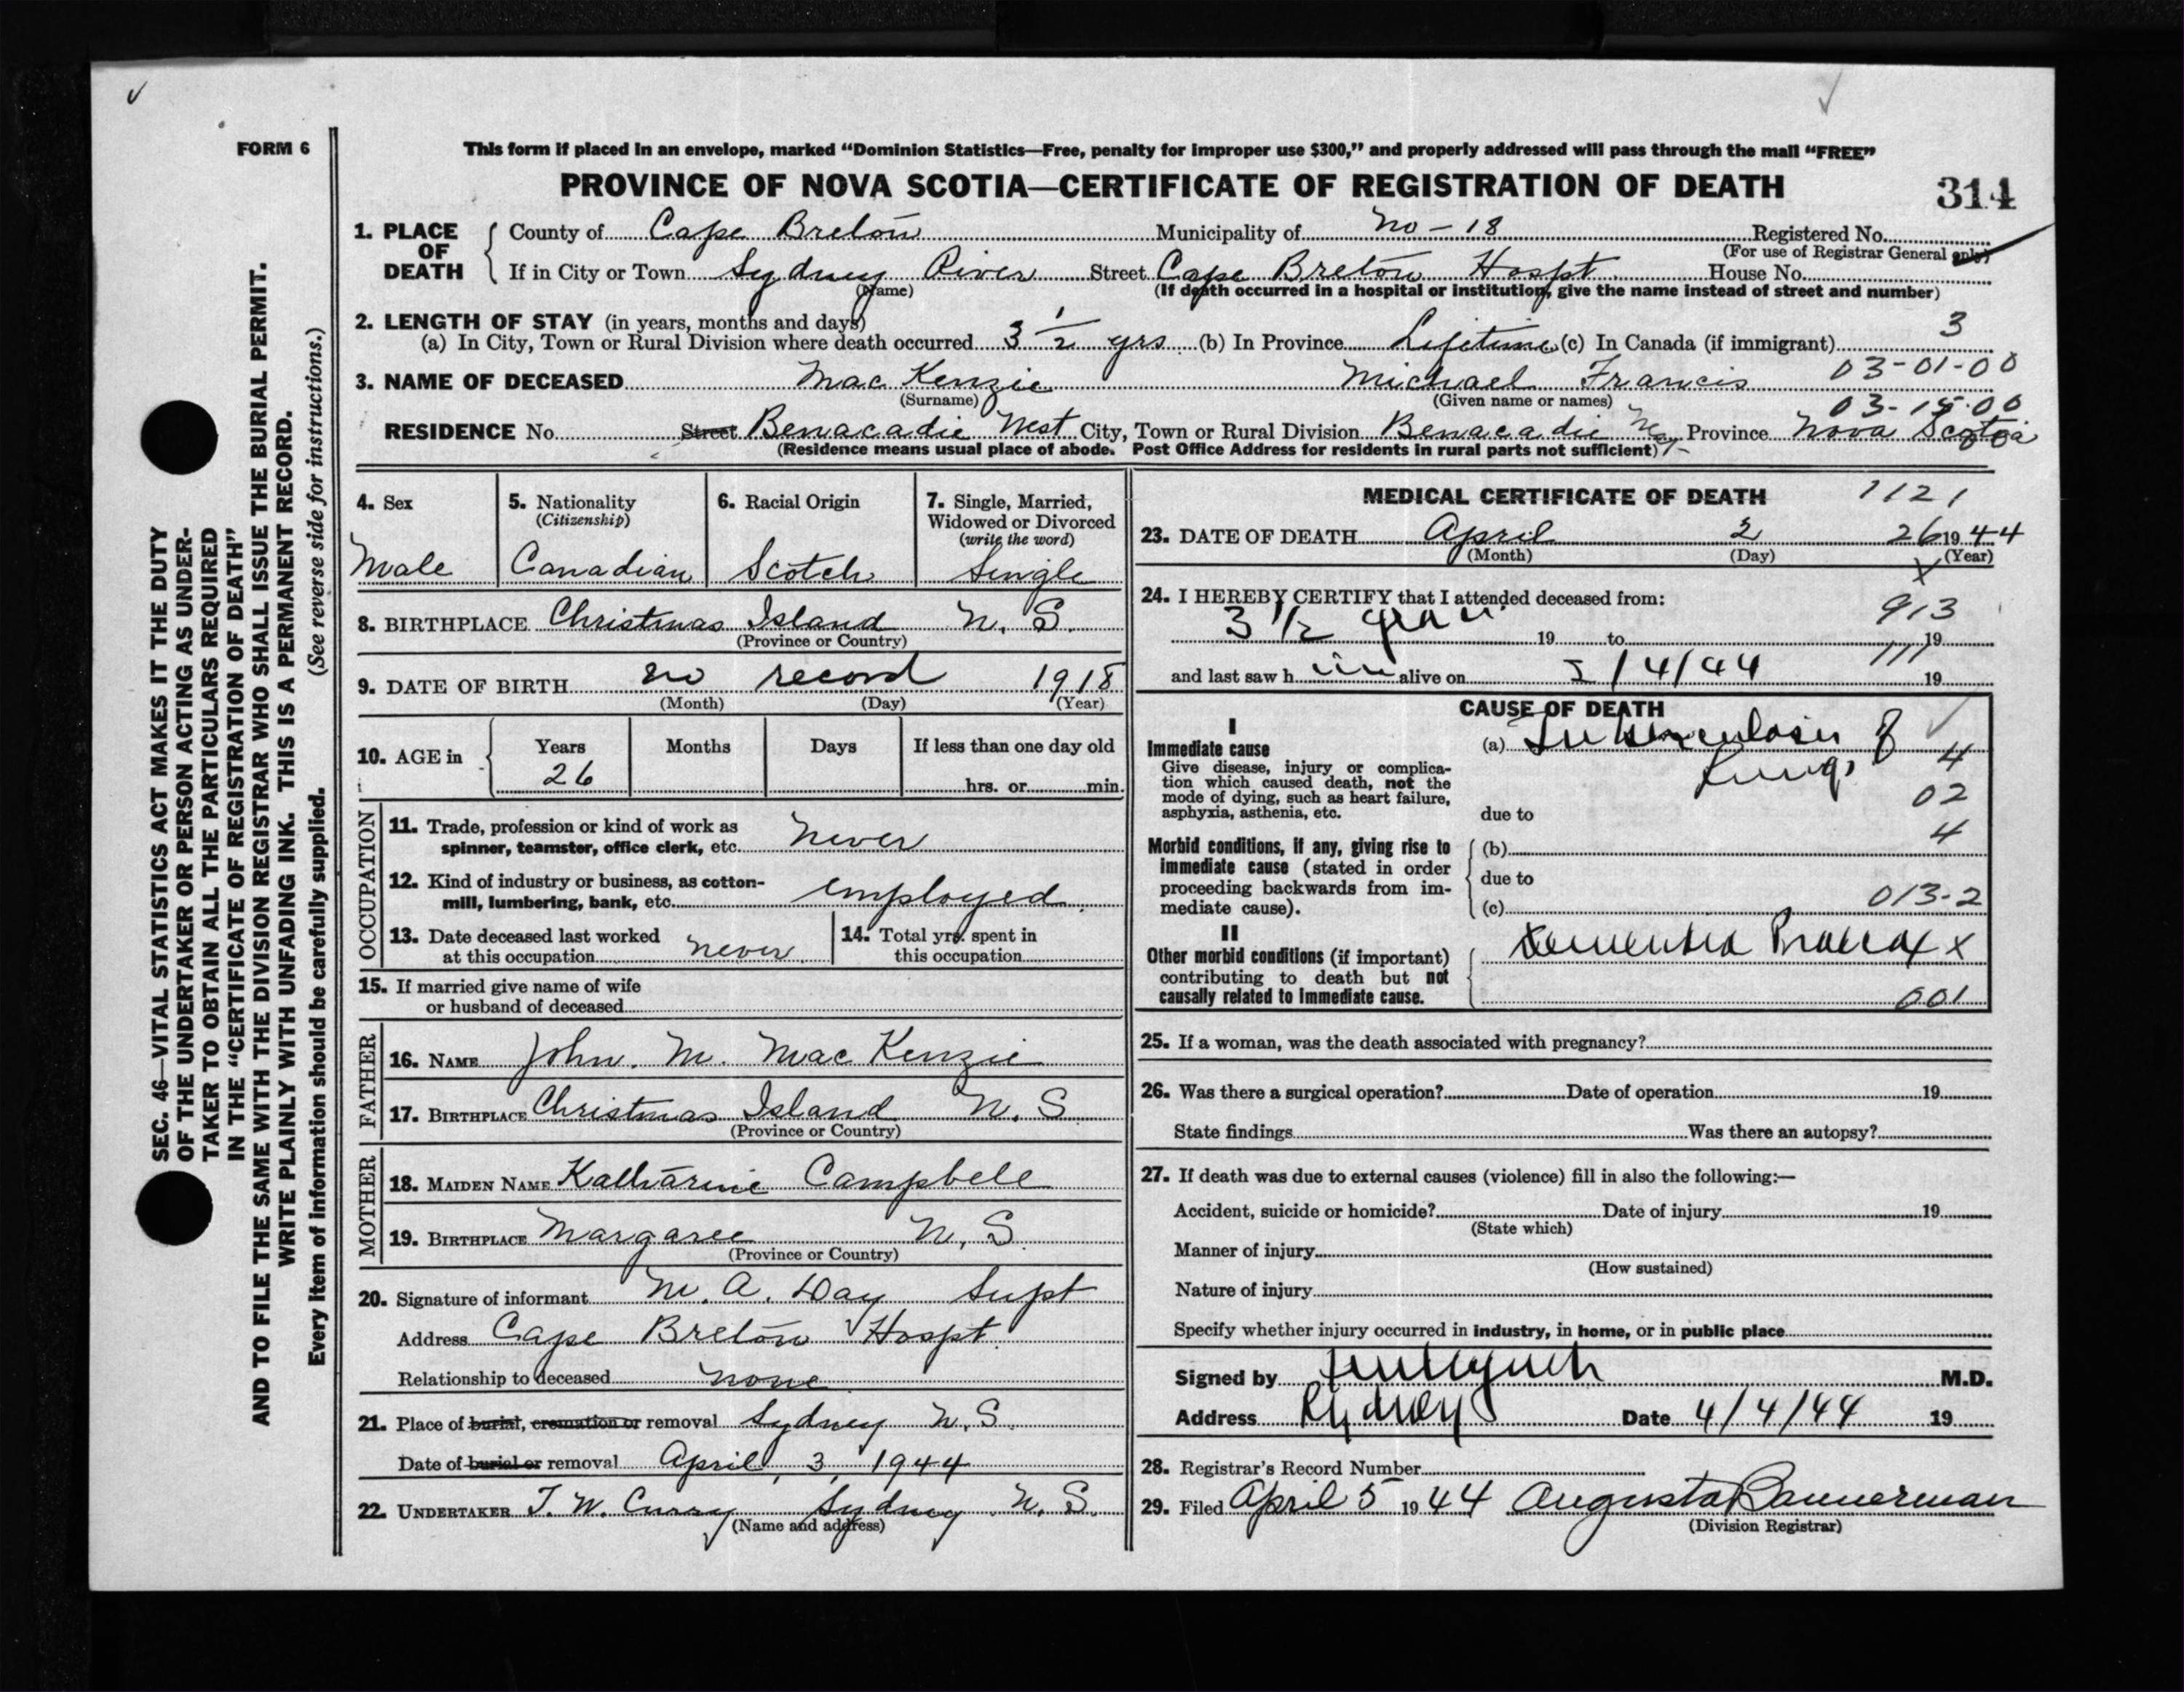 FORM 6
This form if placed in an envelope, marked "Dominion Statistics—Free, penalty for improper use $300," and properly addressed will pass through the mail "FREE"
PROVINCE OF NOVA SCOTIA—CERTIFICATE OF REGISTRATION OF DEATH
314
1. PLACE OF DEATH
County of Cape Breton Municipality of No - 18 Registered No.
(For use of Registrar General only)
If in City or Town Sydney River Street Cape Breton Hospt. House No.
(Name) (If death occurred in a hospital or institution, give the name instead of street and number)
2. LENGTH OF STAY (in years, months and days)
(a) In City, Town or Rural Division where death occurred 3 1/2 yrs (b) In Province Lifetime (c) In Canada (if immigrant) 3
3. NAME OF DECEASED Mac Kenzie Michael Francis 03-01-00
(Surname) (Given name or names) 03-15-00
RESIDENCE No. Street Benacadie West City, Town or Rural Division Benacadie Province Nova Scotia
(Residence means usual place of abode. Post Office Address for residents in rural parts not sufficient)
4. Sex
Male
5. Nationality
(Citizenship)
Canadian
6. Racial Origin
Scotch
7. Single, Married,
Widowed or Divorced
(write the word)
Single
8. BIRTHPLACE Christmas Island N. S.
(Province or Country)
9. DATE OF BIRTH no record 1918
(Month) (Day) (Year)
10. AGE in
Years Months Days If less than one day old
26 hrs. or min.
OCCUPATION
11. Trade, profession or kind of work as
spinner, teamster, office clerk, etc. never
12. Kind of industry or business, as cotton-
mill, lumbering, bank, etc. employed
13. Date deceased last worked
at this occupation never
14. Total yrs. spent in
this occupation
15. If married give name of wife
or husband of deceased
FATHER
16. NAME John. M. Mac Kenzie
17. BIRTHPLACE Christmas Island N. S
(Province or Country)
MOTHER
18. MAIDEN NAME Katharine Campbell
19. BIRTHPLACE Margaree N. S.
(Province or Country)
20. Signature of informant M. A. Day Supt
Address Cape Breton Hospt.
Relationship to deceased none
21. Place of burial, cremation or removal Sydney N. S.
Date of burial or removal April, 3, 1944
22. UNDERTAKER T. W. Curry Sydney N. S.
(Name and address)
MEDICAL CERTIFICATE OF DEATH 1121
23. DATE OF DEATH April 2 26 1944
(Month) (Day) (Year)
x
24. I HEREBY CERTIFY that I attended deceased from:
913
3 1/2 years 19 to 19
111
and last saw h im alive on /4/44 19
CAUSE OF DEATH
I
Immediate cause
Give disease, injury or complica-
tion which caused death, not the
mode of dying, such as heart failure,
asphyxia, asthenia, etc.
(a) Tuberculosis of
Lungs 4
02
due to
4
Morbid conditions, if any, giving rise to
immediate cause (stated in order
proceeding backwards from im-
mediate cause).
(b)
due to
013-2
(c)
II
Other morbid conditions (if important)
contributing to death but not
causally related to immediate cause.
Dementia Praecox x
001
25. If a woman, was the death associated with pregnancy?
26. Was there a surgical operation? Date of operation 19
State findings Was there an autopsy?
27. If death was due to external causes (violence) fill in also the following:—
Accident, suicide or homicide? Date of injury 19
(State which)
Manner of injury
(How sustained)
Nature of injury
Specify whether injury occurred in industry, in home, or in public place
Signed by M.D.
Address Sydney Date 4/4/44 19
28. Registrar's Record Number
29. Filed April 5 1944 Augusta Bannerman
(Division Registrar)
SEC. 46—VITAL STATISTICS ACT MAKES IT THE DUTY
OF THE UNDERTAKER OR PERSON ACTING AS UNDER-
TAKER TO OBTAIN ALL THE PARTICULARS REQUIRED
IN THE "CERTIFICATE OF REGISTRATION OF DEATH"
AND TO FILE THE SAME WITH THE DIVISION REGISTRAR WHO SHALL ISSUE THE BURIAL PERMIT.
WRITE PLAINLY WITH UNFADING INK. THIS IS A PERMANENT RECORD.
Every item of information should be carefully supplied. (See reverse side for instructions.)